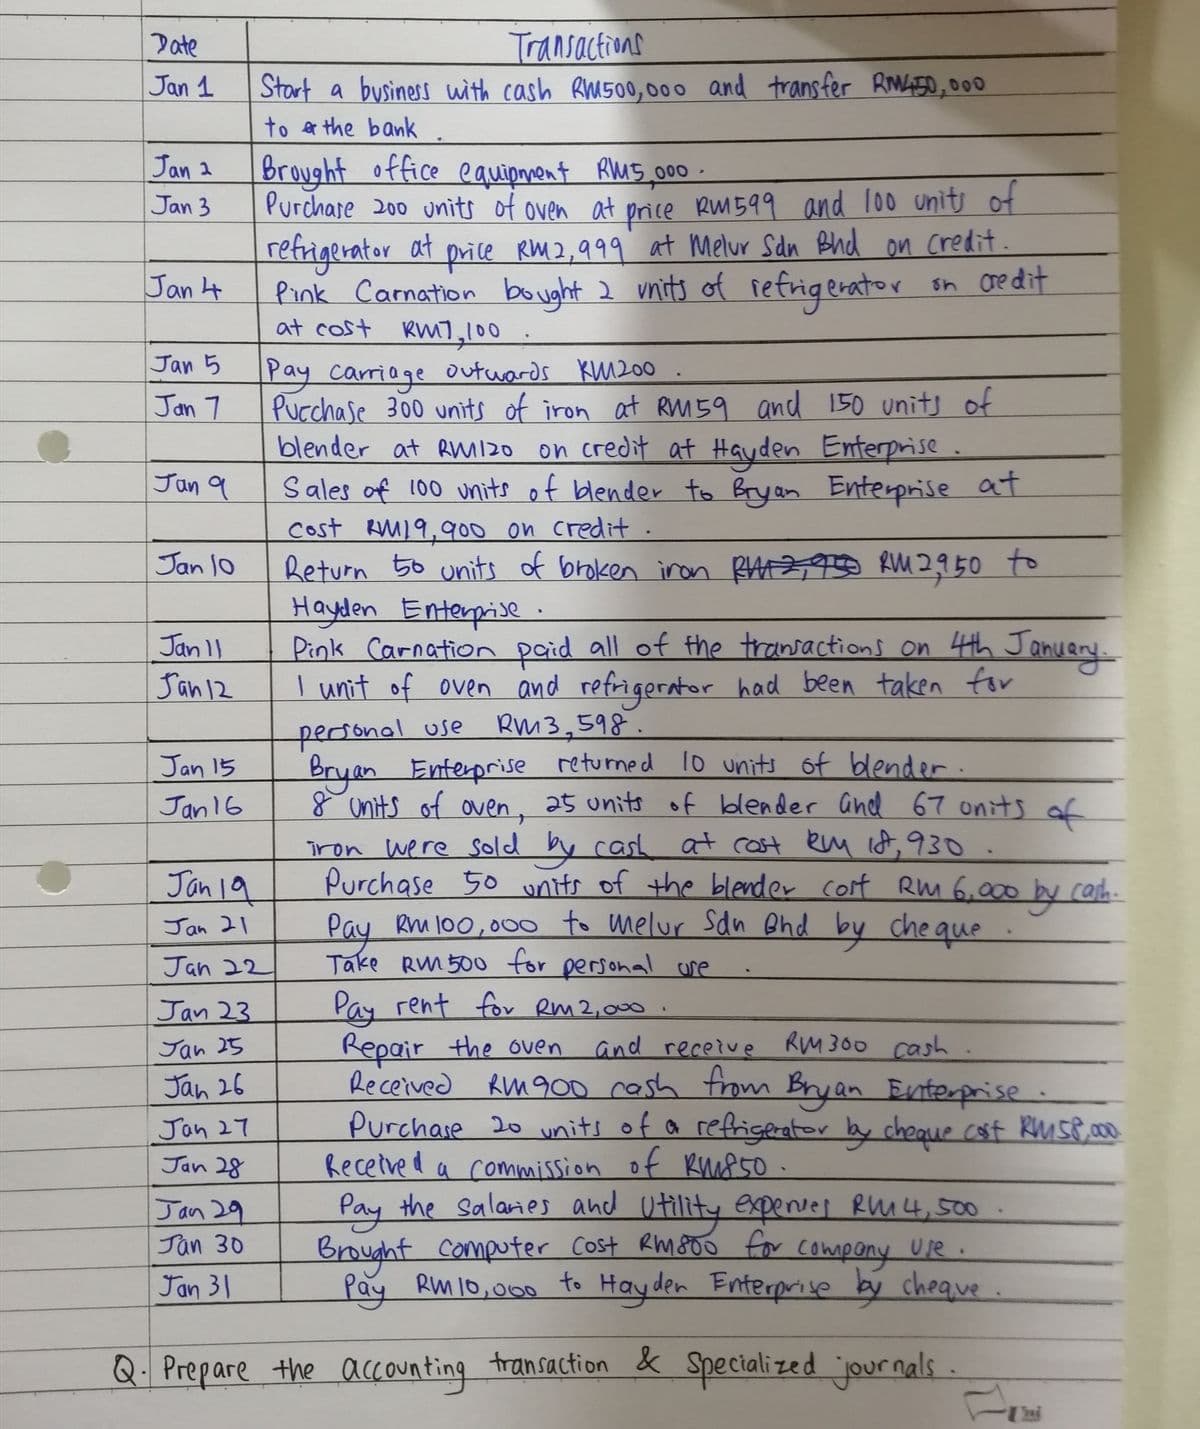 Date Transactions
Jan 1 Start a business with cash RM500,000 and transfer RM450,000
to the bank.
Jan 2 Brought office equipment RM5,000.
Jan 3 Purchase 200 units of oven at price RM599 and 100 units of
refrigerator at price RM2,999 at Melur Sdn Bhd on credit.
Jan 4 Pink Carnation bought 2 units of refrigerator on credit
at cost RM7,100.
Jan 5 Pay carriage outwards RM200.
Jan 7 Purchase 300 units of iron at RM59 and 150 units of
blender at RM120 on credit at Hayden Enterprise.
Jan 9 Sales of 100 units of blender to Bryan Enterprise at
cost RM19,900 on credit.
Jan 10 Return 50 units of broken iron RM2,950 to
Hayden Enterprise.
Jan 11 Pink Carnation paid all of the transactions on 4th January.
Jan 12 1 unit of oven and refrigerator had been taken for
personal use RM3,598.
Jan 15 Bryan Enterprise returned 10 units of blender.
Jan 16 8 units of oven, 25 units of blender and 67 units of
iron were sold by cash at cost RM 18,930.
Jan 19 Purchase 50 units of the blender cost RM 6,000 by cash.
Jan 21 Pay RM 100,000 to Melur Sdn Bhd by cheque.
Jan 22 Take RM 500 for personal use.
Jan 23 Pay rent for RM2,000.
Jan 25 Repair the oven and receive RM300 cash.
Jan 26 Received RM900 cash from Bryan Enterprise.
Jan 27 Purchase 20 units of a refrigerator by cheque cost RM58,000
Jan 28 Received a commission of RM850.
Jan 29 Pay the salaries and utility expenses RM4,500.
Jan 30 Brought computer cost RM800 for company use.
Jan 31 Pay RM10,000 to Hayden Enterprise by cheque.
Q. Prepare the accounting transaction & Specialized journals.